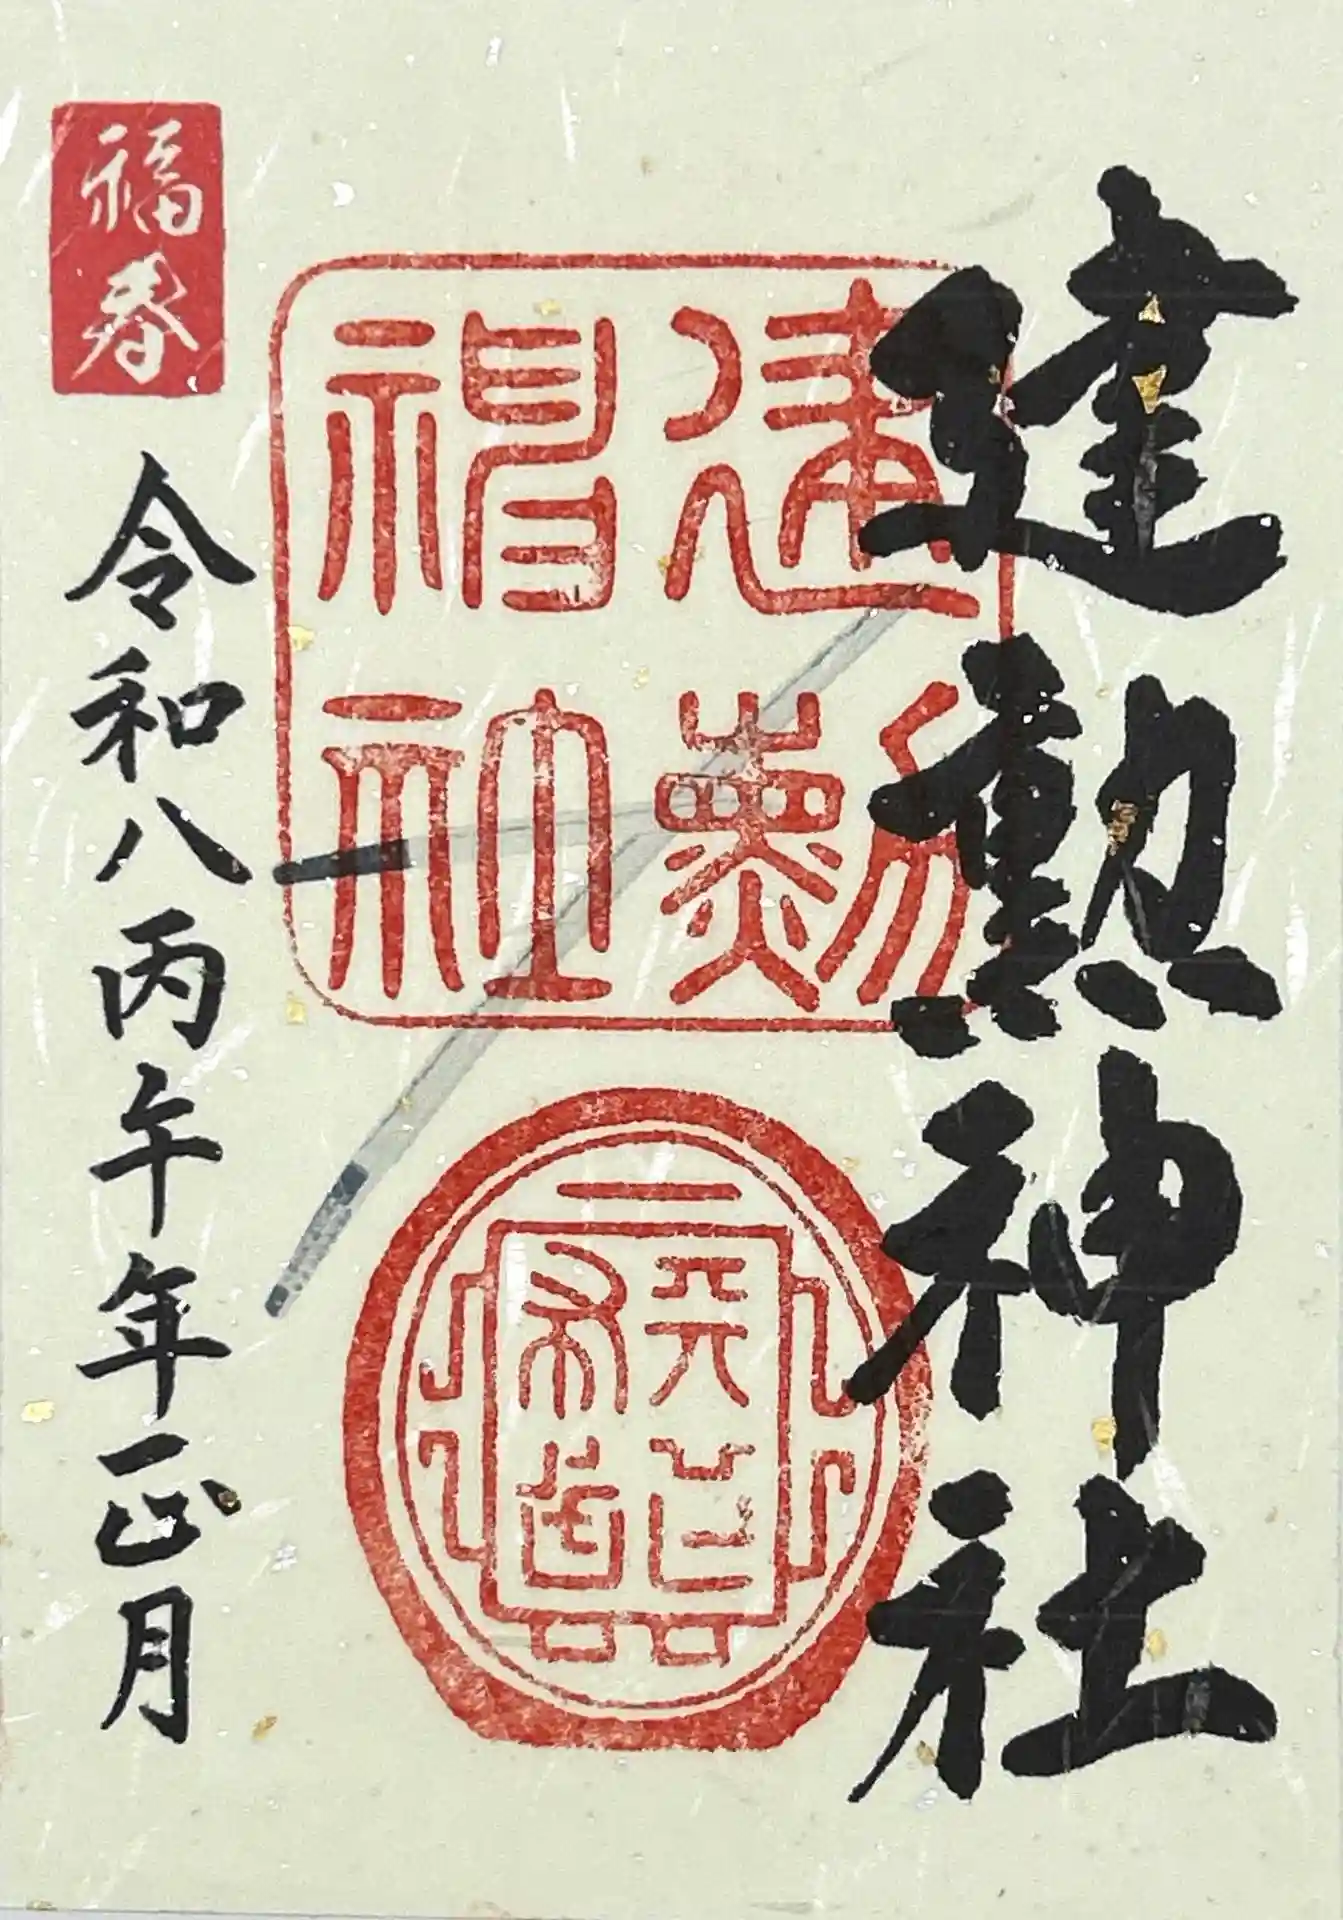 建勲神社
建勲
神社
天下
布武
福春
令和八丙午年正月